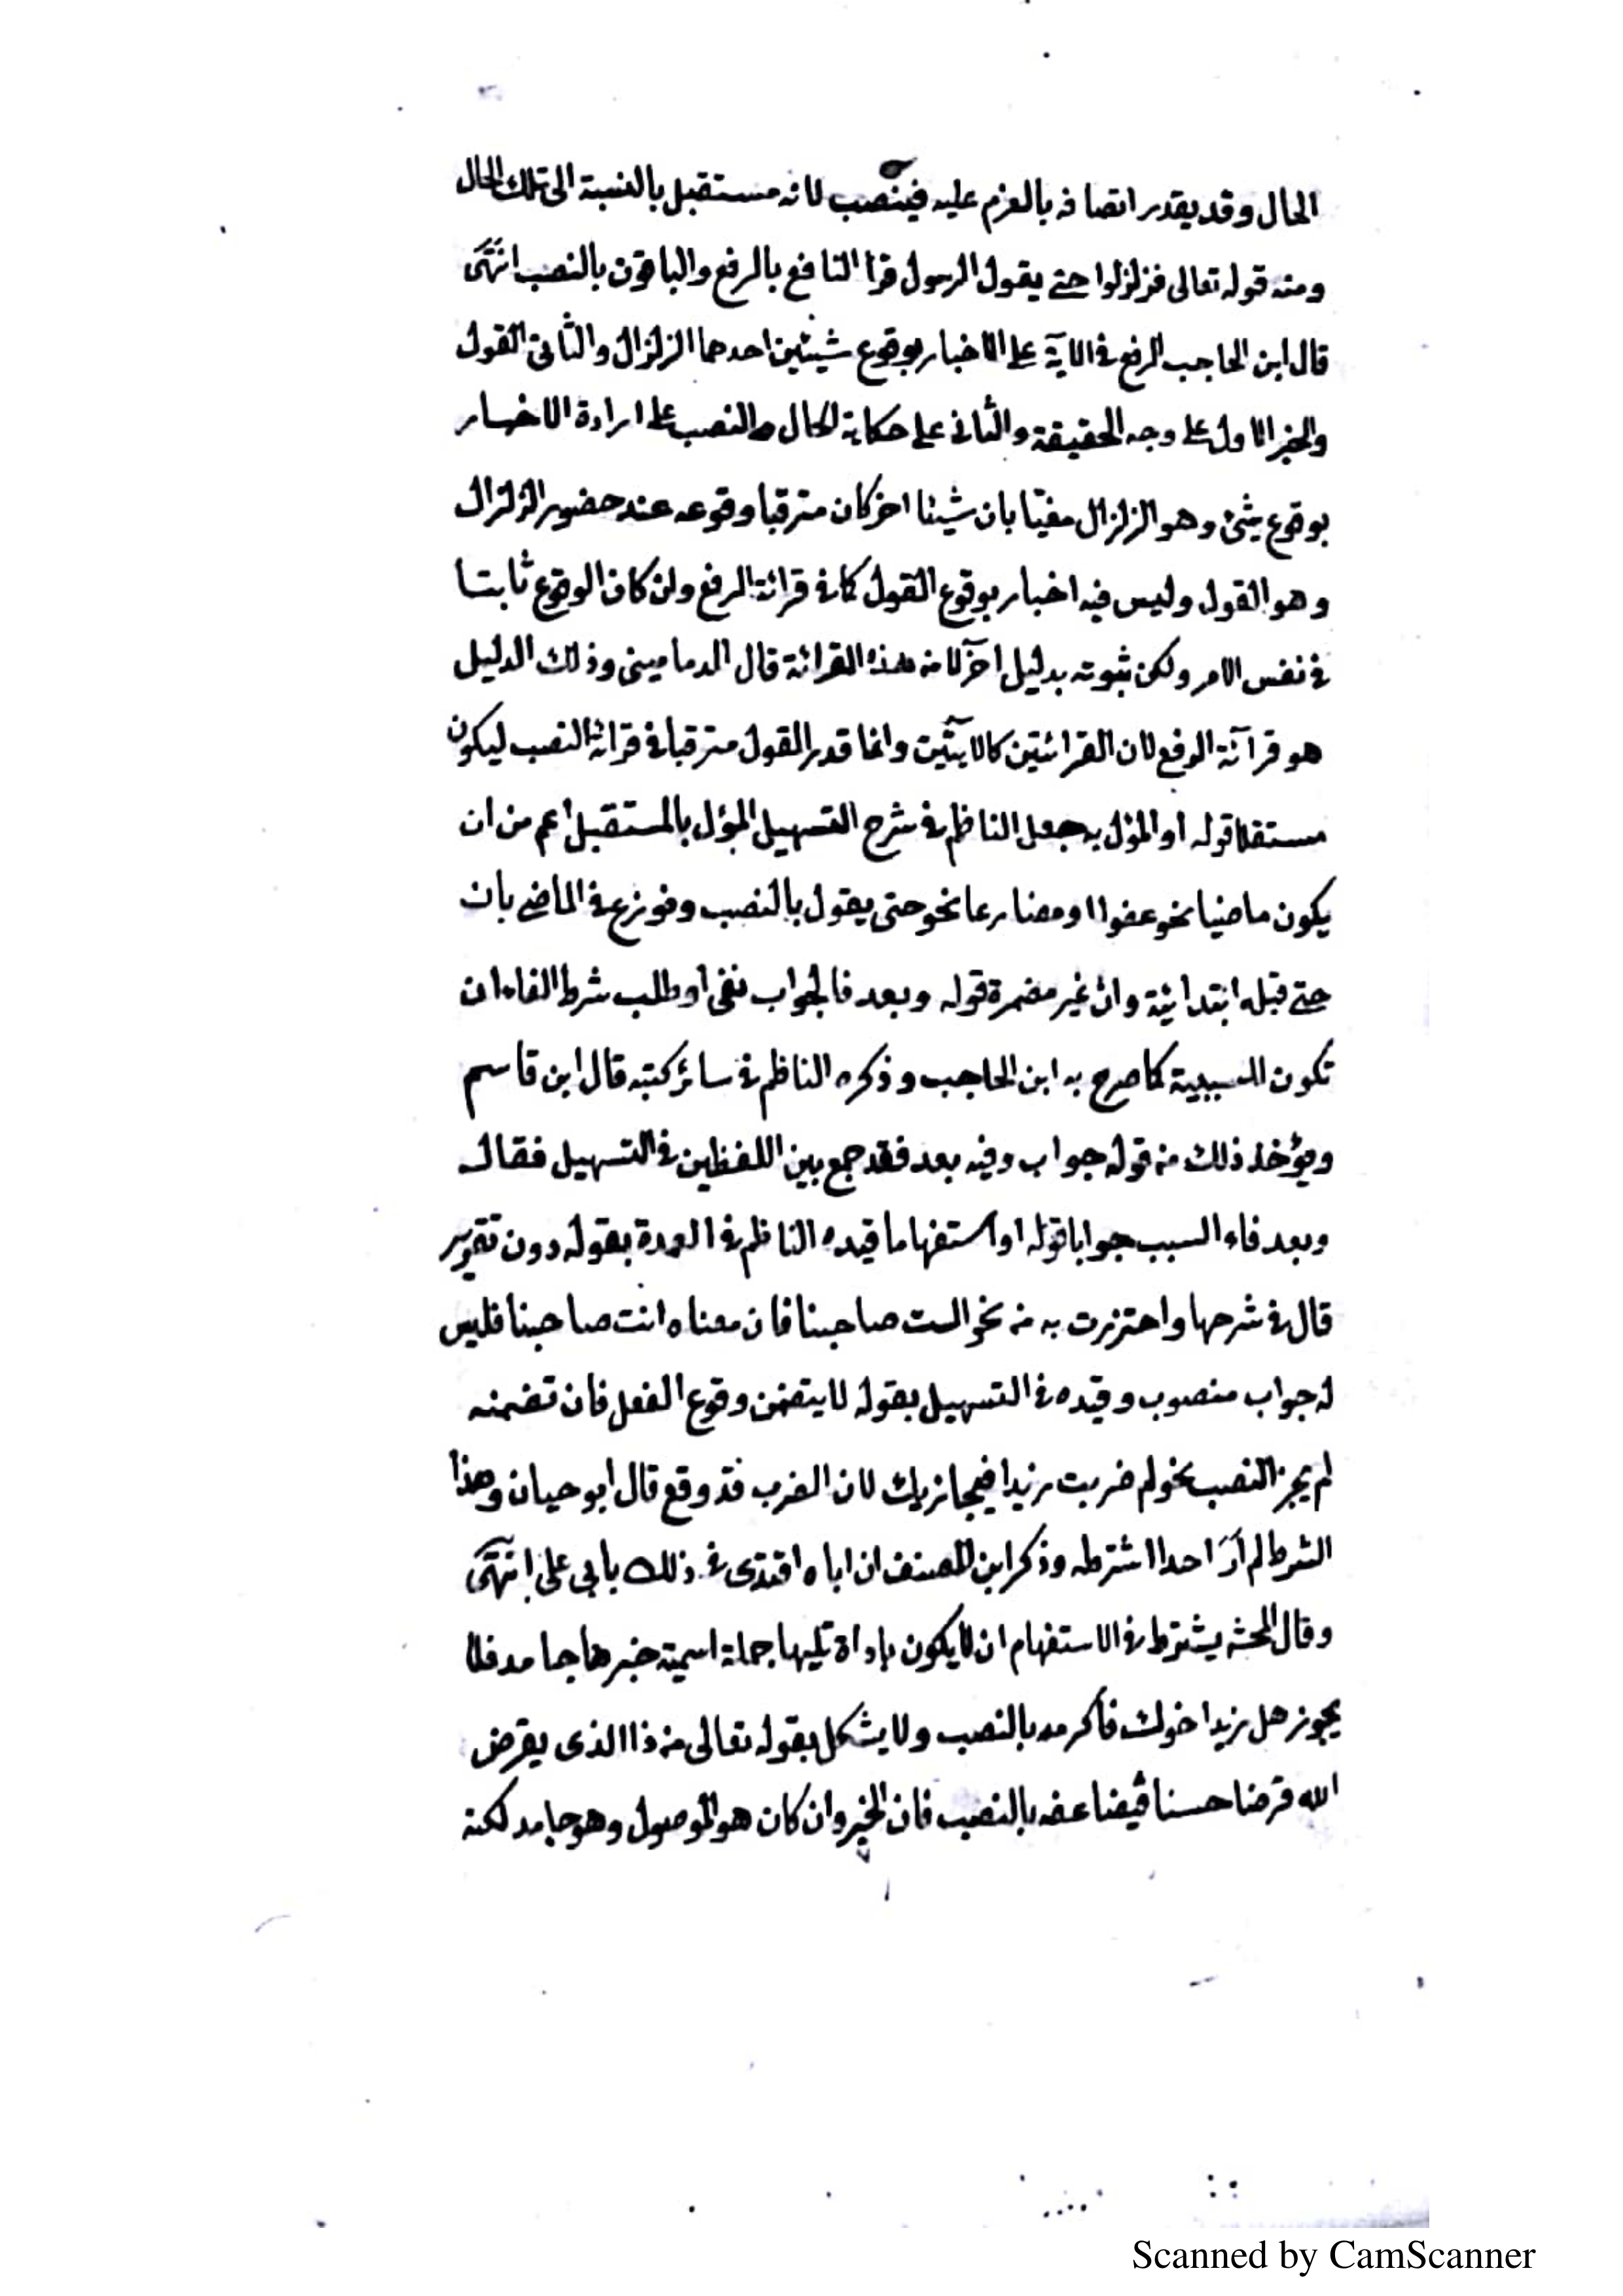 الحال وقد يقدر اتصافه بالعزم عليه فينصب لانه مستقبل بالنسبة الى تلك الحال
ومنه قوله تعالى فزلزلوا حتى يقول الرسول قرأ النافع بالرفع والباقون بالنصب انتهى
قال ابن الحاجب الرفع فى الاية على الاخبار بوقوع شيئين احدهما الزلزال والثانى القول
والخبر الاول على وجه الحقيقة والثانى على حكاية الحال والنصب على ارادة الاخبار
بوقوع شئ وهو الزلزال مغيا بان شيئا اخر كان مترقبا وقوعه عند حضور الزلزال
وهو القول وليس فيه اخبار بوقوع القول كما فى قرائة الرفع وان كان الوقوع ثابتا
فى نفس الامر ولكن ثبوته بدليل آخر لا من هذه القرائة قال الدمامينى وذلك الدليل
هو قرآئة الرفع لان القرائتين كالآيتين وانما قدر القول مترقبا فى قرائة النصب ليكون
مستقبلا قوله او المؤل به جعل الناظم فى شرح التسهيل المؤل بالمستقبل أعم من ان
يكون ماضيا نحو عفوا او مضارعا نحو حتى يقول بالنصب ونوزع فى الماضى بان
حتى قبله ابتدائية وان غير مضمرة قوله وبعد فا لجواب نفى او طلب شرط الفاء ان
تكون للسببية كما صرح به ابن الحاجب وذكره الناظم فى سائر كتبه قال ابن قاسم
ويؤخذ ذلك من قوله جواب وفيه بعد فقد جمع بين اللفظين فى التسهيل فقال
وبعد فاء السبب جوابا قوله او استفهاما قيده الناظم فى العمدة بقوله دون تقرير
قال فى شرحها واحترزت به من نحو الست صاحبنا فان معناه انت صاحبنا فليس
له جواب منصوب وقيده فى التسهيل بقوله لا يتضمن وقوع الفعل فان تضمنه
لم يجز النصب نحو لم ضربت زيدا فيجازيك لان الضرب قد وقع قال ابو حيان وهذا
الشرط لم أرَ احدا اشترطه وذكر ابن المصنف ان اباه اقتدى فى ذلك بابى على انتهى
وقال المحشه يشترط فى الاستفهام ان لا يكون باداة تليها جملة اسمية خبرها جامد فلا
يجوز هل زيد اخوك فأكرمه بالنصب ولا يشكل بقوله تعالى من ذا الذى يقرض
الله قرضا حسنا فيضاعفه بالنصب فان الخبر وان كان هو الموصول وهو جامد لكنه
Scanned by CamScanner